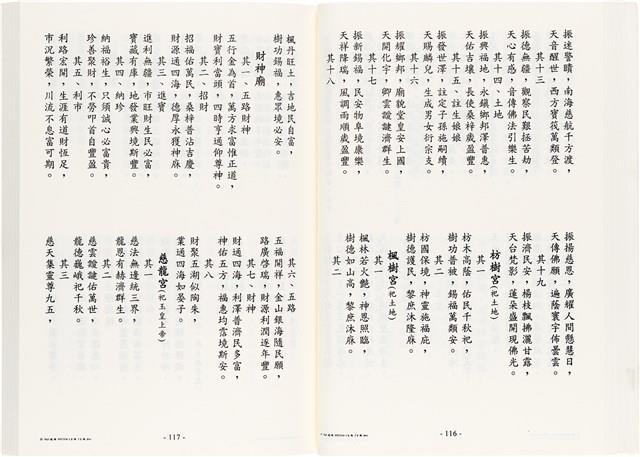 振迷警瞶，南海慈航千方渡，
天音醒世，西方寶筏萬類登。
其十三
振德無疆，觀察民艱拯苦劫，
天心有感，音傳佛法引樂生。
其十四、土地
振興福地，永鎮鄉邦澤普惠，
天佑吉壤，長使桑梓歲盈豐。
其十五、註生娘娘
振發世澤，註定子孫施嗣續，
天賜麟兒，生成男女衍宗支。
其十六
振耀鄉邦，廟貌堂皇安上國，
天開化宇，卿雲靉靆濟群生。
其十七
振新錫福，民安物阜境康樂，
天祥降瑞，風調雨順歲盈豐。
其十八
振揚慈恩，廣耀人間懸慧日，
天傳佛願，遍蔭寰宇佈曇雲。
其十九
振濟民安，楊枝飄拂灑甘露，
天台梵影，蓮朵盛開現佛光。
枋樹宮(祀土地)
其一
枋木高蔭，佑民千秋祀，
樹功普被，錫福萬類安。
其二
枋國保境，神靈施福庇，
樹德護民，黎庶沐隆庥。
楓樹宮(祀土地)
其一
楓林若火艷，神恩照臨，
樹德如山高，黎庶沐庥。
其二
- 116 -
楓丹旺土，吉地民自富，
樹功錫福，惠眾境必安。
財神廟
其一、五路財神
五行金為首，萬方求富惟正道，
財寶利當頭，四時亨通仰尊神。
其二、招財
招福佑萬民，桑梓普沾吉慶，
財源通四海，德厚永獲神庥。
其三、進寶
進利無疆，市旺財生民必富，
寶藏有庫，地發業興境斯豐。
其四、納珍
納福裕生，只須誠心必富貴，
珍善聚財，不勞叩首自豐盈。
其五、利市
利路宏開，生涯有道財恆足，
市況繁榮，川流不息富可期。
其六、五路
五福開祥，金山銀海隨民願，
路廣啓瑞，財源利潤逐年豐。
其七、財神
財通四海，利澤普濟民多富，
神佑五方，福惠均霑境斯安。
其八
財聚五湖似陶朱，
業通四海如晏子。
慈龍宮(祀玉皇上帝)
其一
慈法無邊統三界，
龍恩有赫濟群生。
其二
慈雲靉靆佑萬世，
龍德巍峨祀千秋。
其三
慈天集靈尊九五，
- 117 -